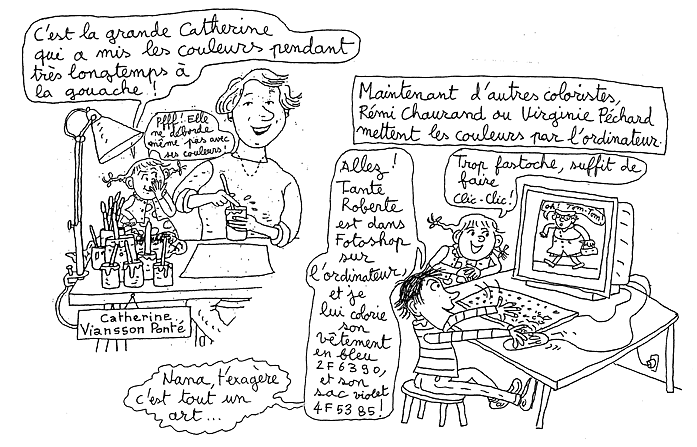 C'est la grande Catherine
qui a mis les couleurs pendant
très longtemps à
la gouache !
Pfff ! Elle
ne déborde
même pas avec
ses couleurs !
Catherine
Viansson Ponté
Maintenant d'autres coloristes,
Rémi Chaurand ou Virginie Péchard
mettent les couleurs par l'ordinateur.
Allez !
Tante
Roberte
est dans
Fotoshop
sur
l'ordinateur,
et je
lui colorie
son
vêtement
en bleu
2F6390,
et son
sac violet
4F5385 !
Trop fastoche, suffit de
faire
Clic-Clic !
oh! Tom-Tom!
Nana, t'exagère
c'est tout un
art...